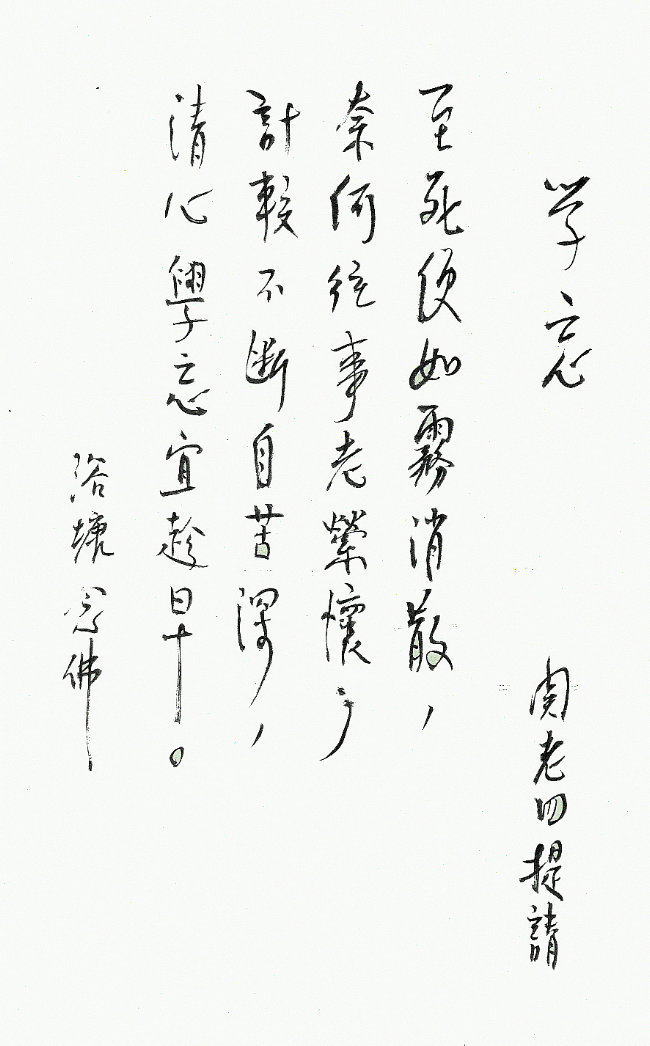 学忘
関老四提請
至死便如霧消散，
奈何往事老縈懷；
計較不斷自苦深，
清心學忘宜趁早。
洛塘念佛